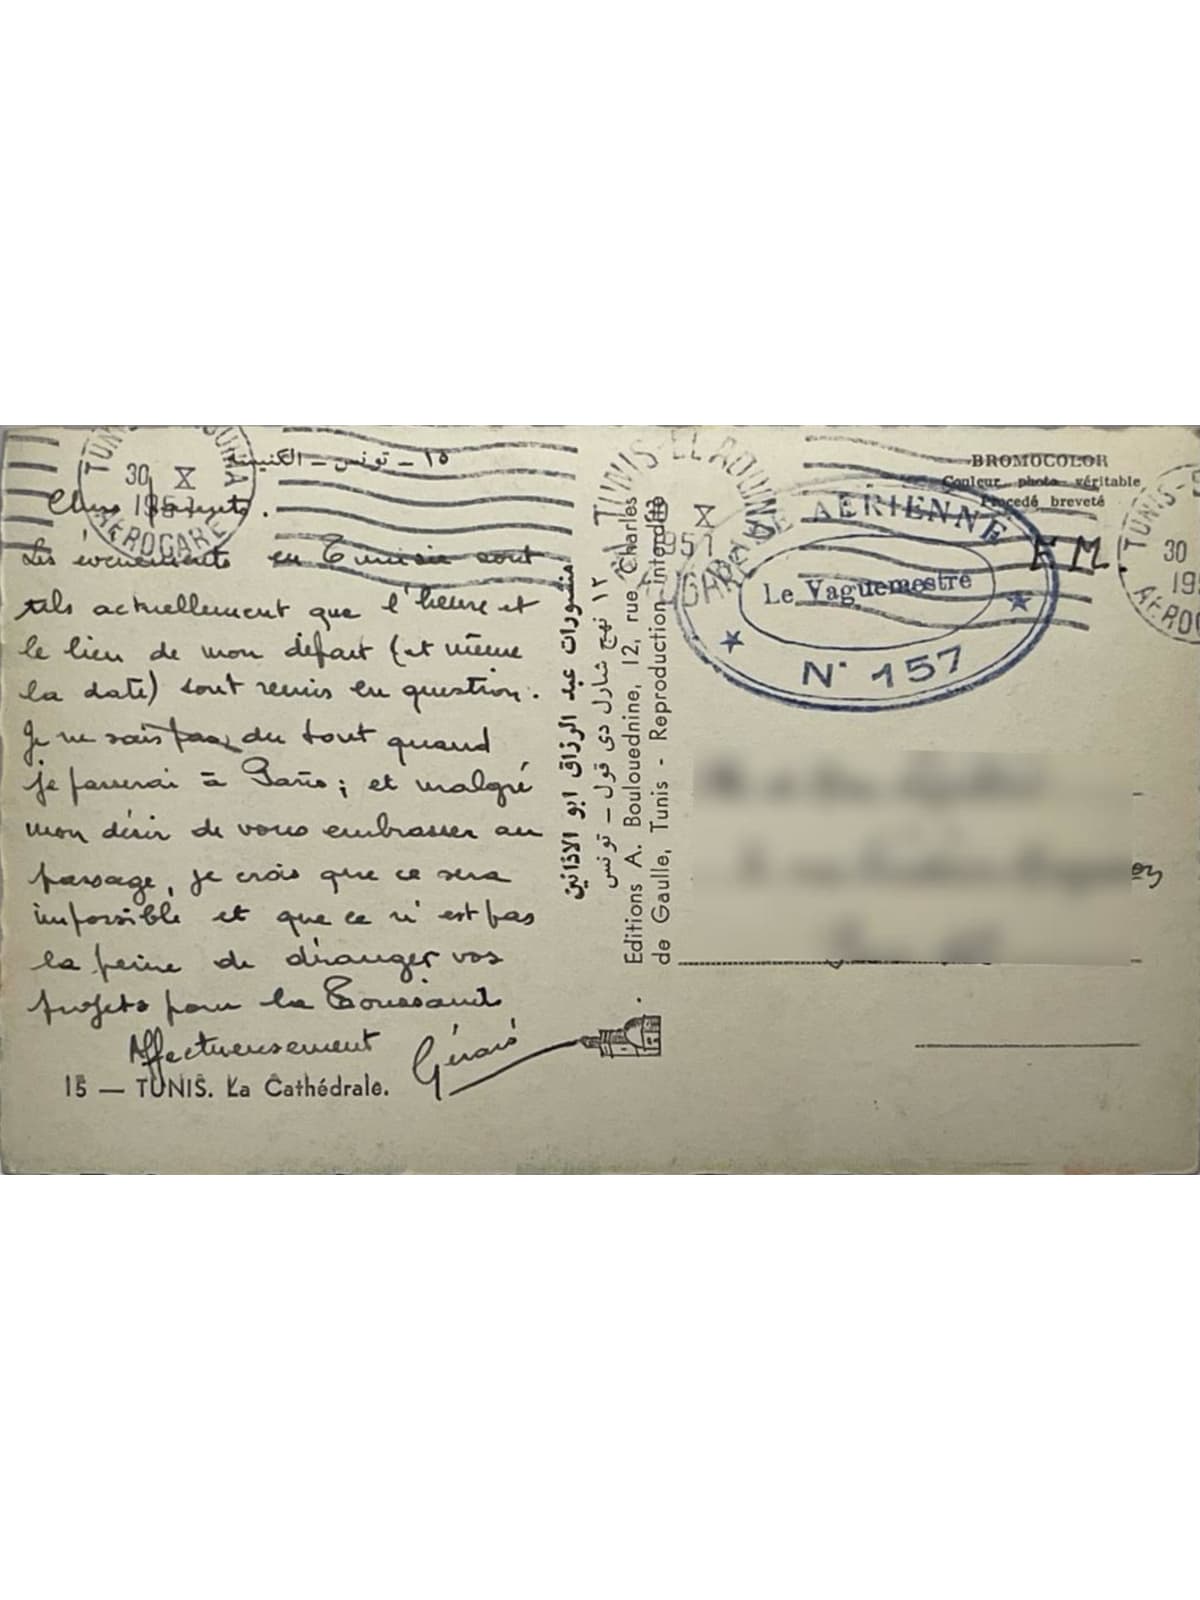 TUNIS-EL AOUINA
30 X
1957
AEROGARE
١٥ – تونس – الكنيسة
Chers parents.
Les évènements en Tunisie sont
tels actuellement que l'heure et
le lieu de mon départ (et même
la date) sont remis en question.
Je ne sais pas du tout quand
je passerai à Paris ; et malgré
mon désir de vous embrasser au
passage, je crois que ce sera
impossible et que ce n'est pas
la peine de déranger vos
projets pour la Toussaint
Affectueusement Gérard
15 — TUNIS. La Cathédrale.
منشورات عبد الرزاق ابو الاذانين
١٢ نهج شارل دي قول – تونس
Editions A. Boulouednine, 12, rue Charles
de Gaulle, Tunis - Reproduction interdite
TUNIS-EL AOUINA
X
1957
BROMOCOLOR
Couleur photo véritable
Procédé breveté
BASE AÉRIENNE
Le Vaguemestre
N° 157
F M.
TUNIS-
30
AEROG